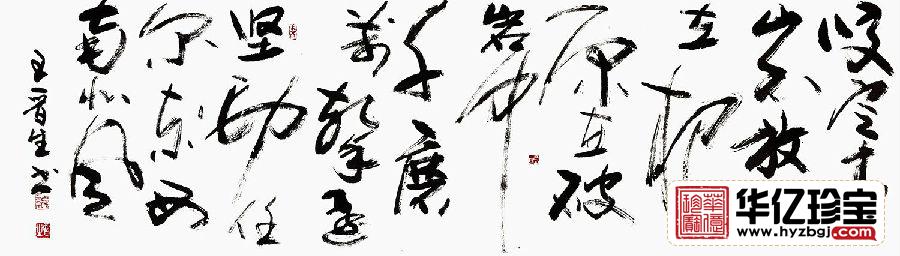 咬定
山不放
立根
原在破
岩中
千磨
万擊還
坚劲任
尔东西
南北风
王晋生书
华亿珍宝
www.hyzbgj.com